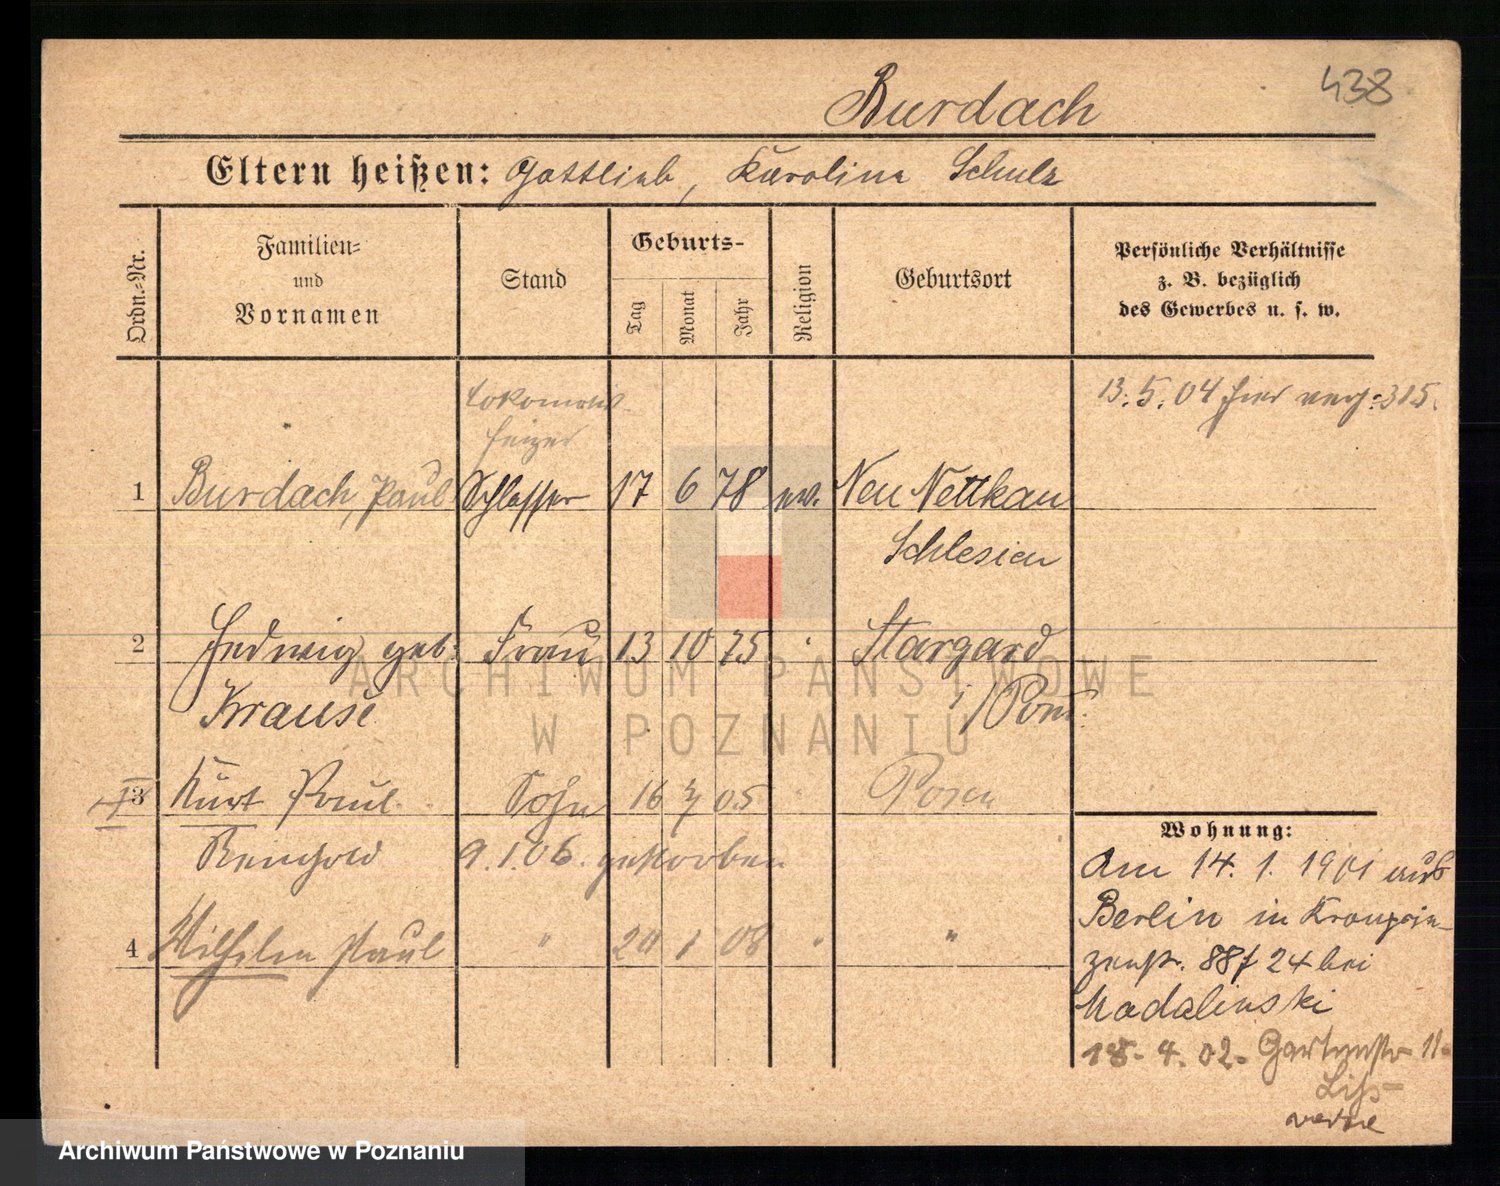 438
Burdach
Eltern heißen: Gottlieb, Karolina Schulz
Ordn.-Nr.
Familien-
und
Vornamen
Stand
Geburts-
Tag
Monat
Jahr
Religion
Geburtsort
Persönliche Verhältnisse
z. B. bezüglich
des Gewerbes u. s. w.
Lokomotiv-
heizer
13. 5. 04 hier 315.
1 Burdach, Paul Schlosser 17 6 78 ev. Neu Nettkau
Schlesien
2 Hedwig geb. Frau 13 10 75 " Stargard
Krause i/Pom.
3 Kurt Paul Sohn 16 7 05 " Posen
Reinhold 9. 1. 06. gestorben
4 Wilhelm Paul " 20 1 08 " "
Wohnung:
Am 14. 1. 1901 aus
Berlin in Kronprin-
zenstr. 88 24 bei
Madalinski
18. 4. 02. Gartenstr. 11.
ARCHIWUM PAŃSTWOWE
W POZNANIU
Archiwum Państwowe w Poznaniu